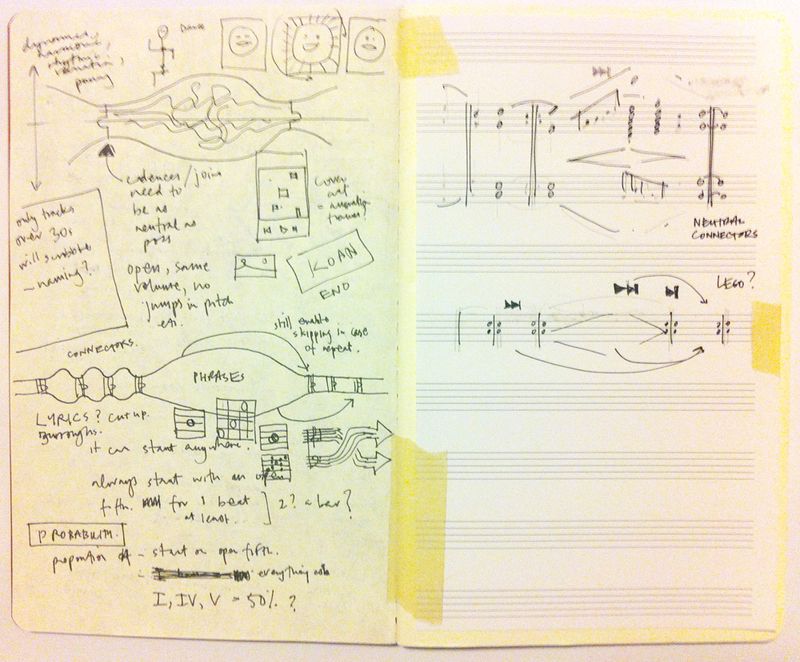 dynamics,
harmonic,
rhythmic
variation,
panning
Dance
cadences/joins
need to
be as
neutral as
poss
open, same
volume, no
jumps in pitch
etc.
only tracks
over 30s
will scrobble
naming?..
cover
art
=
KOAN
END
still enable
skipping in case
of repeat.
CONNECTORS.
PHRASES
LYRICS? cut up.
Burroughs.
it can start anywhere.
always start with an open
fifth. for 1 beat
at least.
2? a bar?
PROBABILITY.
proportion of - start on open fifth.
- everything else
I, IV, V = 50% ?
NEUTRAL
CONNECTORS
LEGO?